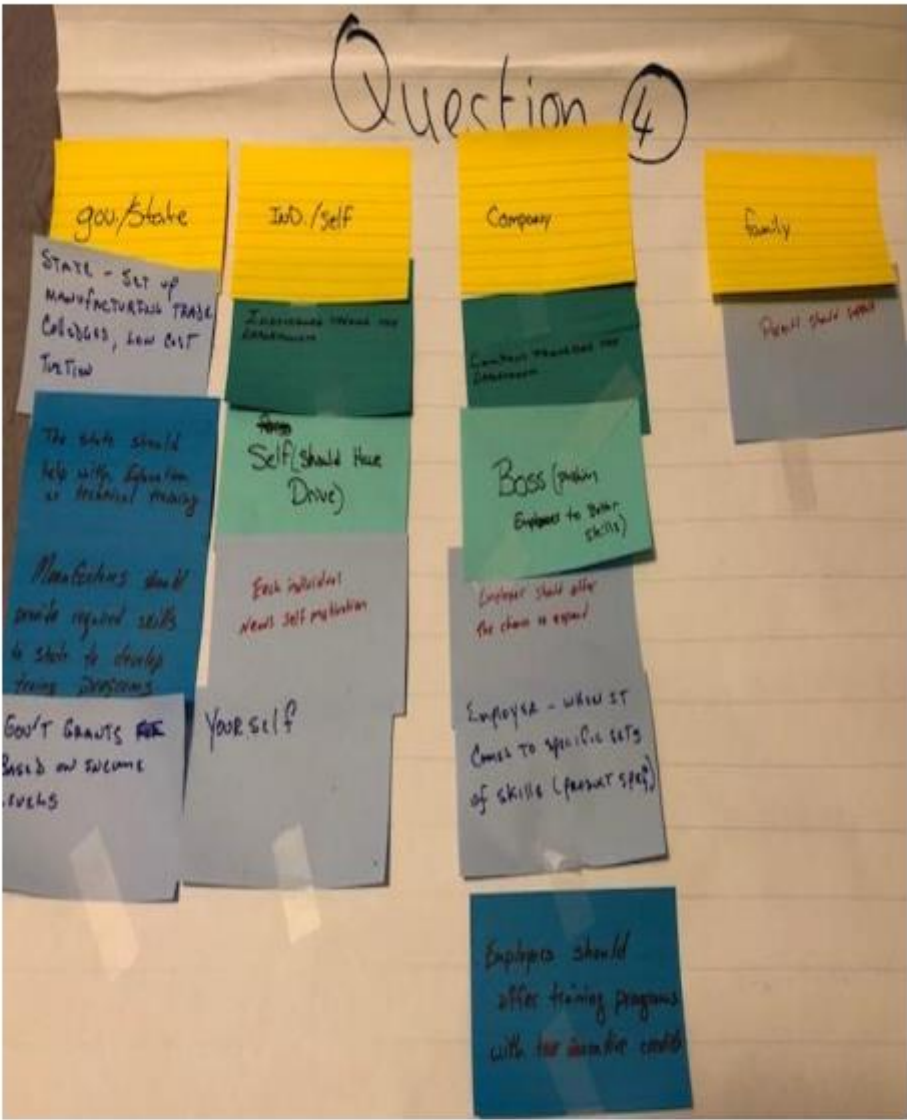 Question 4
gov./State
STATE - SET UP
MANUFACTURING TRADE
COLLEDGES, LOW COST
TUITION
The state should
help with Education
or technical training
Manufactures should
provide required skills
to state to develop
GOV'T GRANTS
BASED ON INCOME
LEVELS
IND./self
Self (should Have
Drive)
Each individual
Needs self motivation
YOURSElf
Company
Boss (pushin
Employees to Better
skills)
Employer should offer
the chance to expand
EMPLOYER - WHEN IT
COMES TO SPECIFIC SETS
of skills (PRODUCT SPEC)
Employers should
offer training programs
with tax incentive credits
family
should support